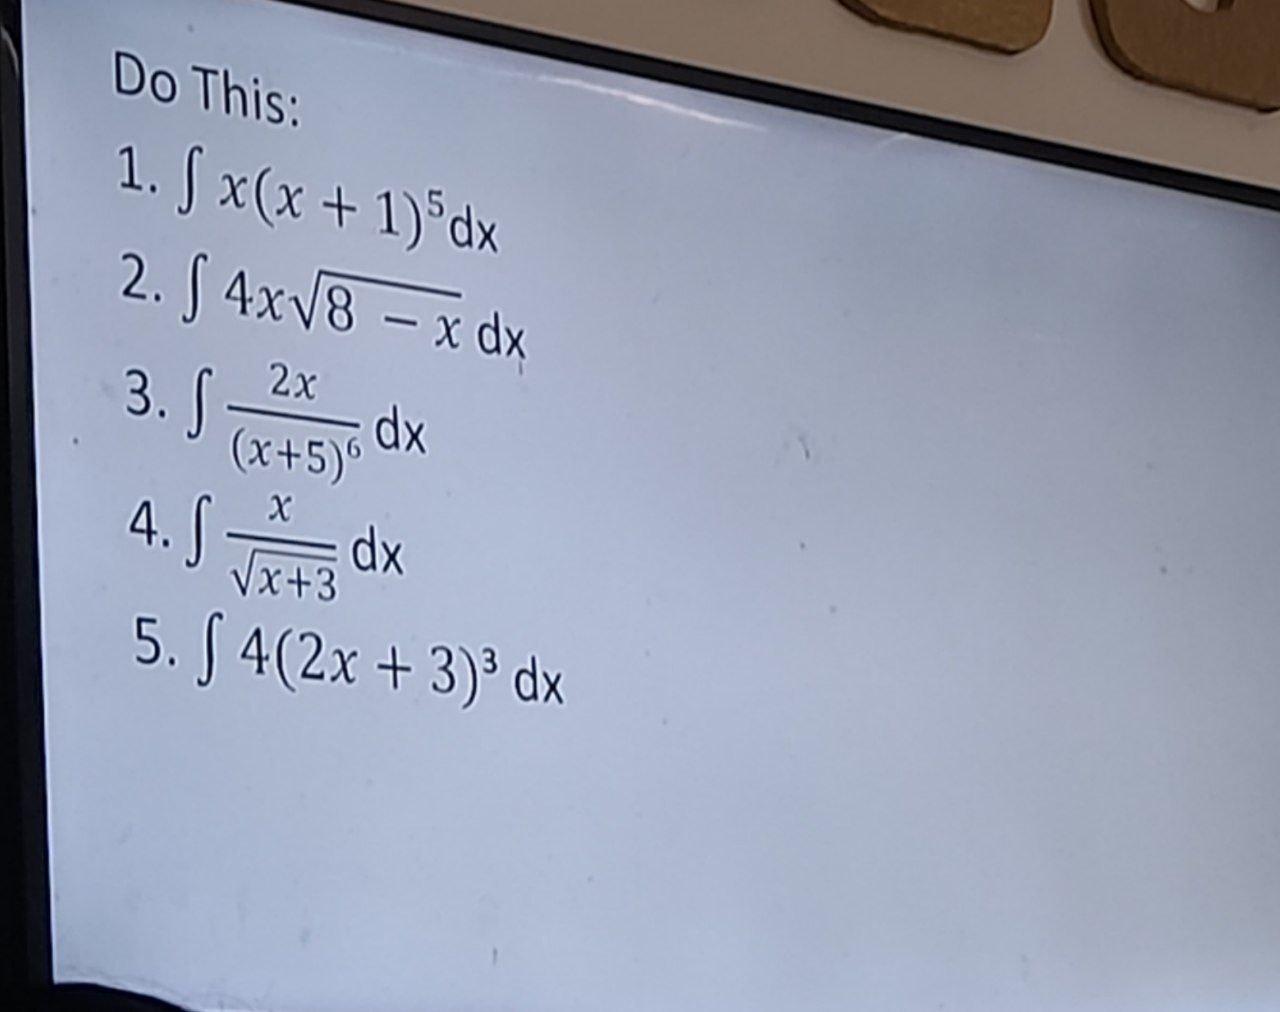 Do This:
1. ∫ x(x + 1)⁵dx
2. ∫ 4x√(8 − x) dx
3. ∫ 2x/(x+5)⁶ dx
4. ∫ x/√(x+3) dx
5. ∫ 4(2x + 3)³ dx